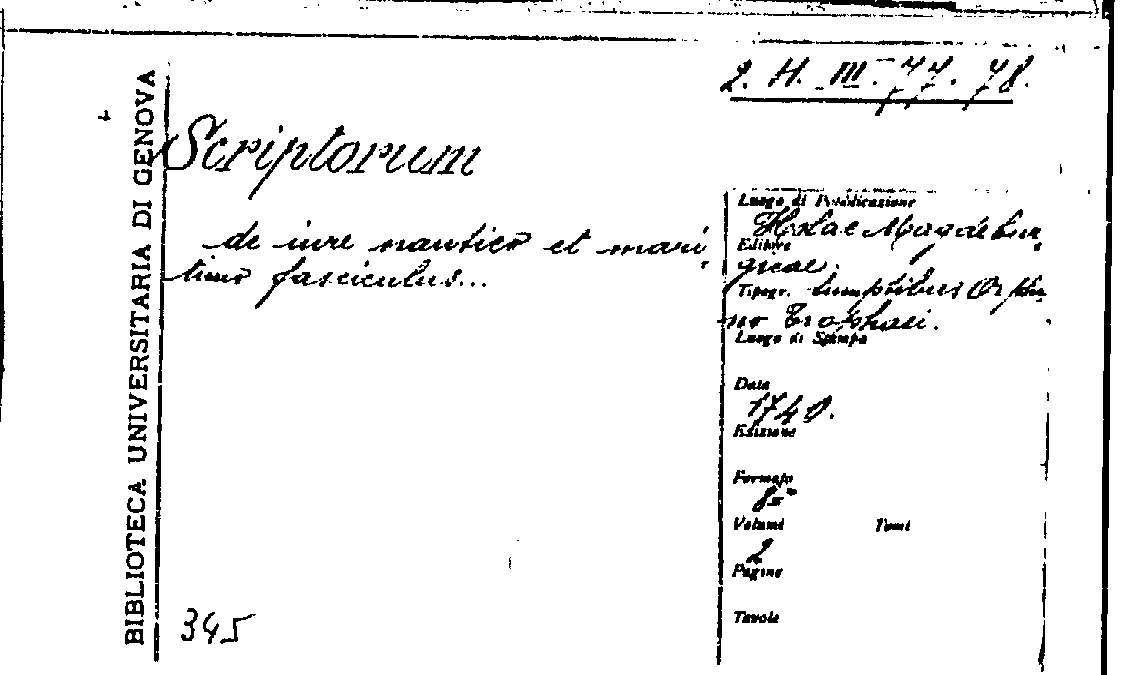 2. H. III. 77. 78.
BIBLIOTECA UNIVERSITARIA DI GENOVA
Scriptorum
de iure nautico et mari
timo fasciculus...
Luogo di Pubblicazione
Halae Magdebur
Editore
gicae.
Tipogr. Sumptibus Orpha
no Trophaei.
Luogo di Stampa
Data
1740.
Edizione
Formato
8º
Volumi Tomi
2
Pagine
Tavole
345